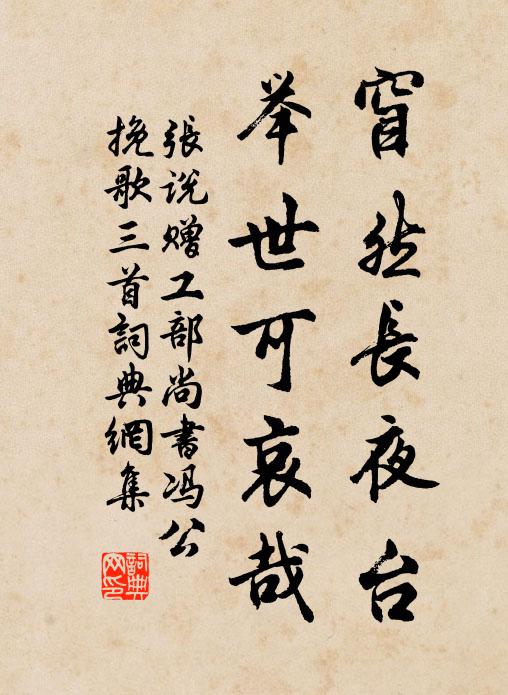 窅然長夜台
举世可哀哉
張说赠工部尚書冯公
挽歌三首詞典網集
詞典網印